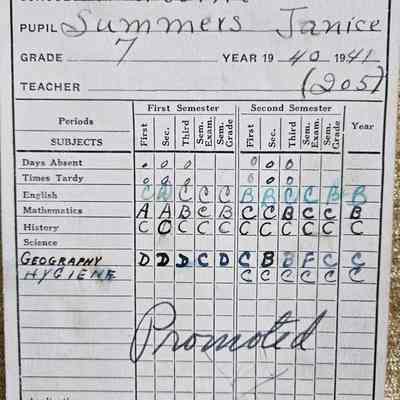 PUPIL Summers Janice
GRADE 7 YEAR 19 40 1941
TEACHER (205)
First Semester Second Semester
Periods First Sec. Third Sem. Exam. Sem. Grade First Sec. Third Sem. Exam. Sem. Grade Year
SUBJECTS
Days Absent 0 0 0 0 0 0
Times Tardy 0 0 0 0 0 0
English C C C C B B C C B B
Mathematics A A B C B C C B C C B
History C C C C C C C C C C C
Science
GEOGRAPHY D D D C D C B B F C C
HYGIENE C C C C C C
Promoted